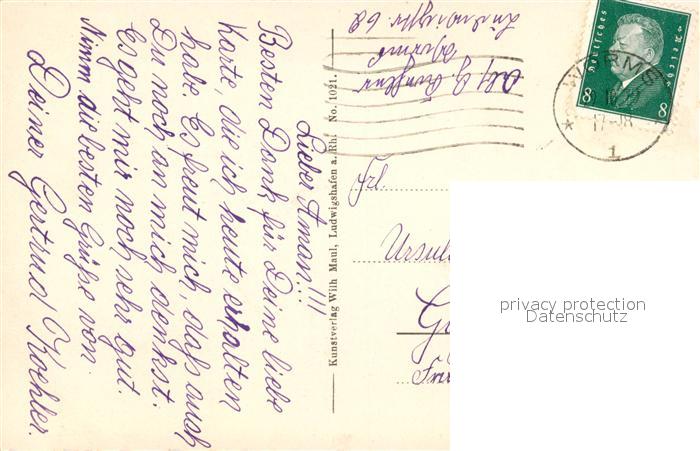 Lieber Aman!!!
Besten Dank, für Deine liebe
Karte, die ich heute erhalten
habe. Es freut mich, daß auch
Du noch an mich denkst.
Es geht mir noch sehr gut.
Nimm die besten Grüße von
Deiner Gertrud Koehler.
Kunstverlag Wilh Maul, Ludwigshafen a. Rh. No. 1021.
68
Deutsches Reich
8 8
WORMS
17-18
1
Frl.
Ursul
privacy protection
Datenschutz